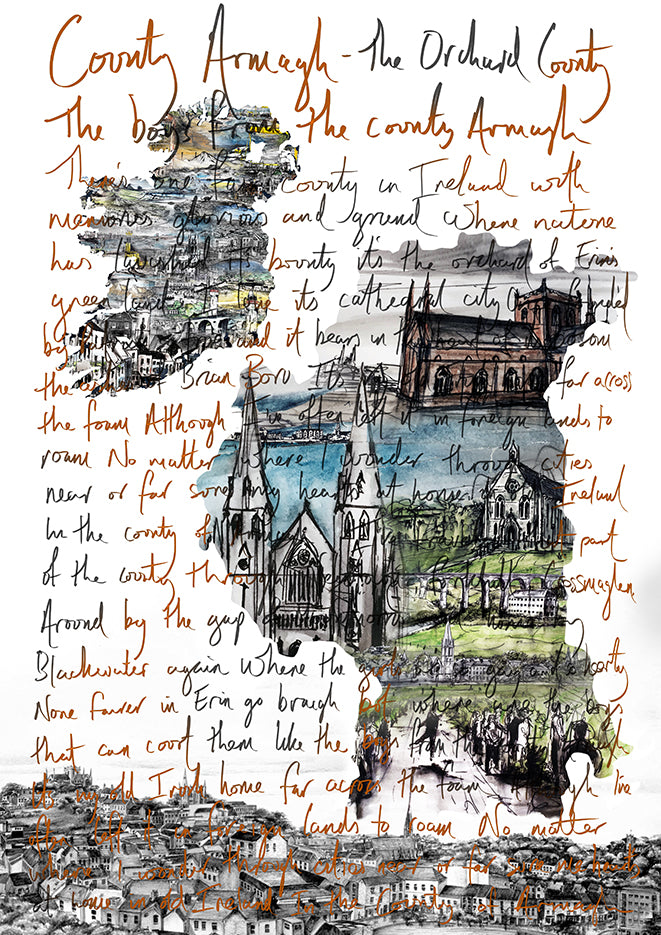 County Armagh - The Orchard County
The boys from the county Armagh
There's one fair county in Ireland with
memories glorious and grand where nature
has lavished its bounty it's the orchard of Erin's
green land I love its cathedral city founded
by and it bears in the heart of its bosom
the ashes of Brian Boru It's my far across
the foam Although I've often left it in foreign lands to
roam No matter where I wonder through cities
near or far sure my heart's at home in old Ireland
In the county of Armagh I've part
of the county through Crossmaglen
Around by the gap and home by
Blackwater again Where the girls are so gay and hearty
None fairer in Erin go bragh but where are the boys
that can court them like the boys from the county Armagh
It's my old Irish home far across the foam Although I've
often left it in foreign lands to roam No matter
where I wonder through cities near or far sure me heart's
at home in old Ireland In the County of Armagh